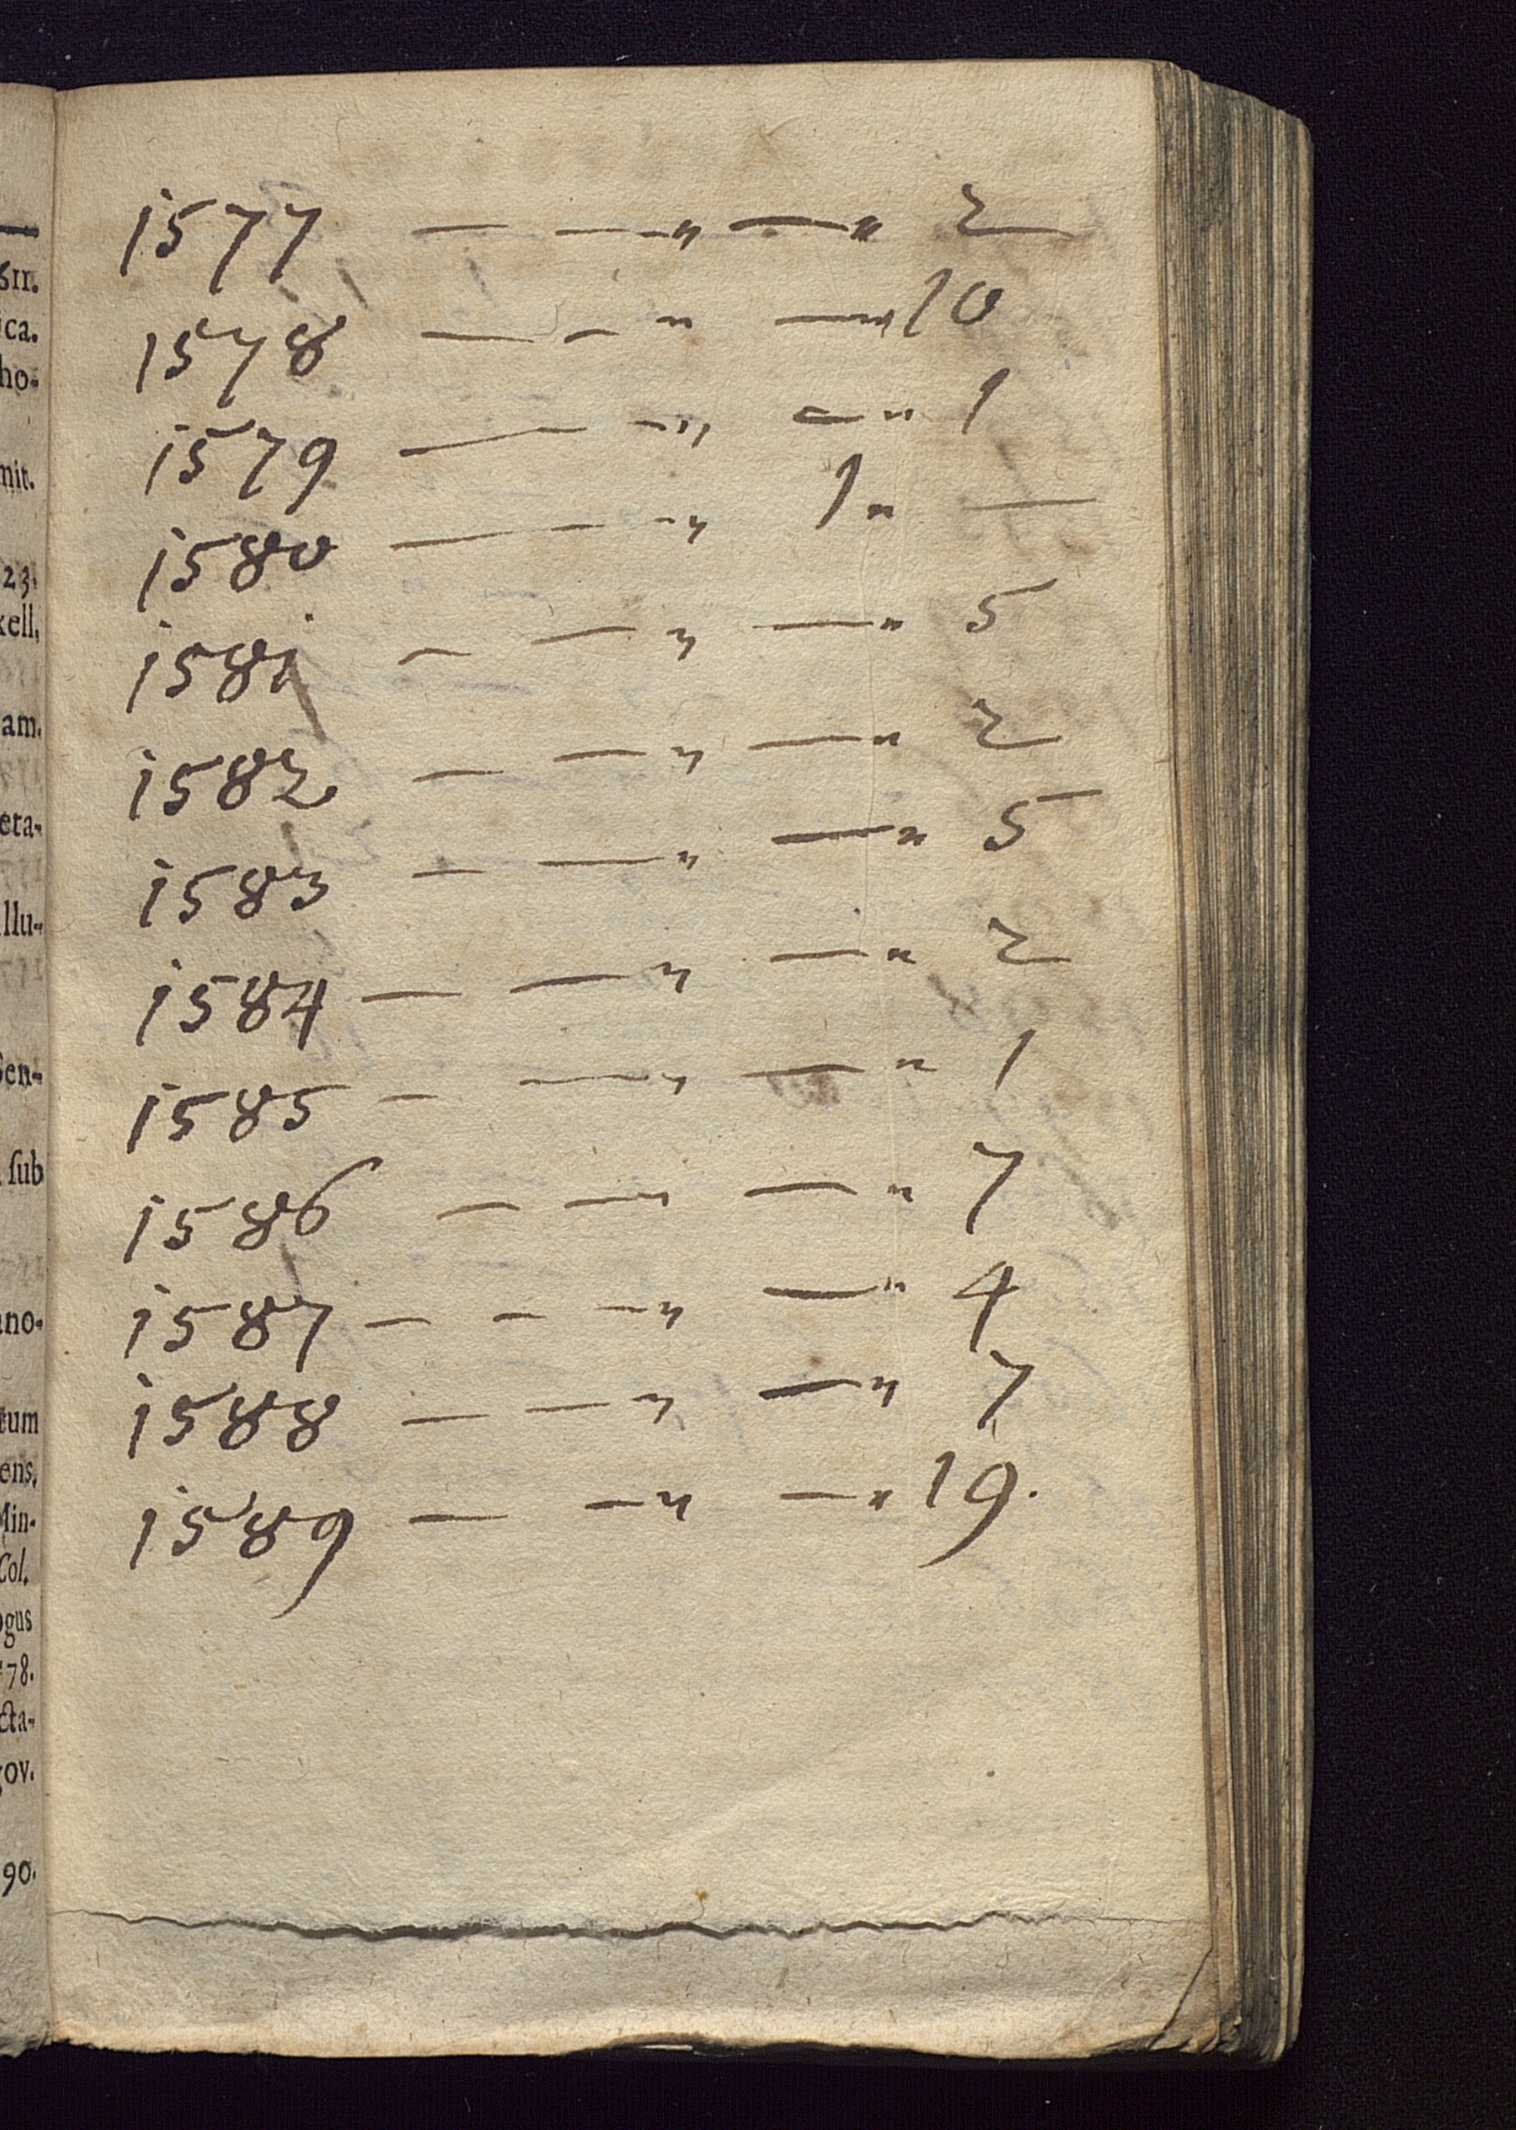 611.
ica.
ho-
mit.
23.
xell,
am.
eta-
llu-
Gen-
sub
ano-
tum
ens.
Min-
Col.
ogus
78.
cta-
gov.
90.
1577 — — „ — „ 2
1578 — — „ — „ 10
1579 — — „ — „ 1
1580 — — „ 1 „ —
1581 — — „ — „ 5
1582 — — „ — „ 2
1583 — — „ — „ 5
1584 — — „ — „ 2
1585 — — „ — „ 1
1586 — — „ — „ 7
1587 — — — „ — „ 4
1588 — — — „ — „ 7
1589 — — „ — „ 19.